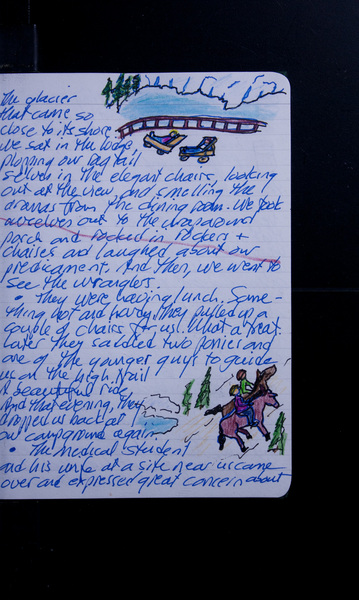 The glacier
that came so
close to its shore
we sat in the lodge,
plopping our bag tail
selves in the elegant chairs, looking
out at the view and smelling the
aromas from the dining room. We took
ourselves out to the wraparound
porch and rocked in rockers +
chaises and laughed about our
predicament. And then, we went to
see the wranglers.
• They were having lunch. Some-
thing hot and hardy, they pulled up a
couple of chairs for us! What a treat.
Later they saddled two ponies and
one of the younger guys to guide
us on the High Trail
A beautiful ride,
And that evening, they
dropped us back at
our campground again.
• The medical student
and his wife at a site near us came
over and expressed great concern about